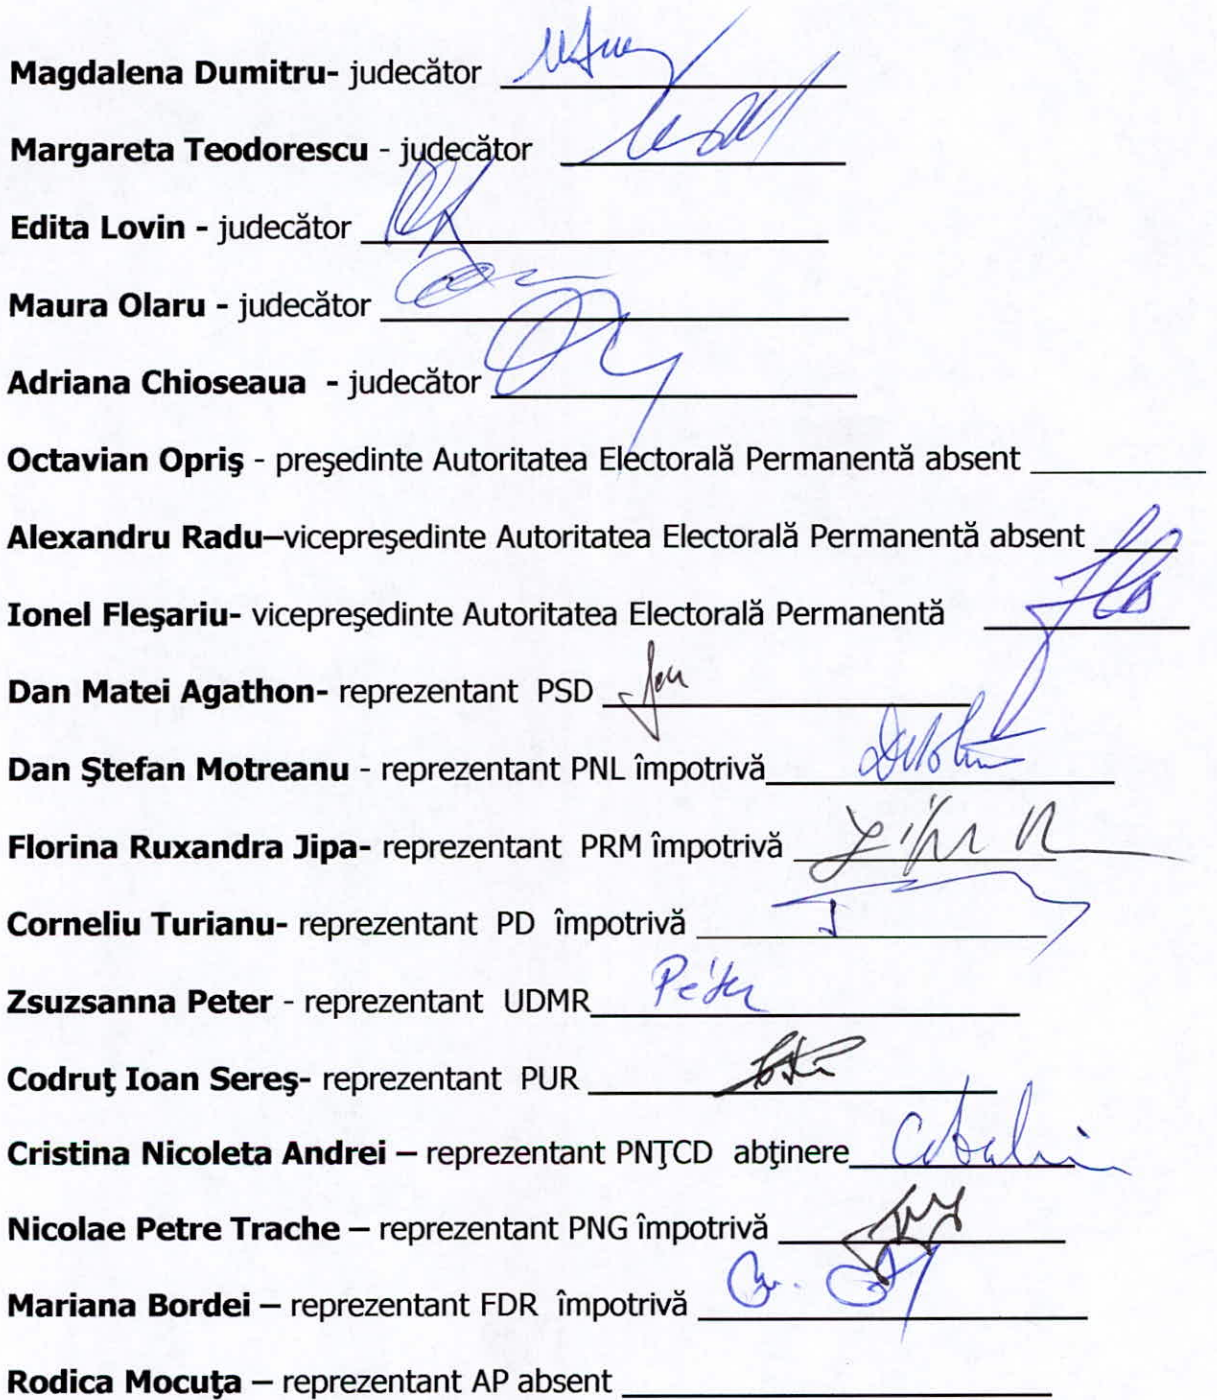 Magdalena Dumitru- judecător
Margareta Teodorescu - judecător
Edita Lovin - judecător
Maura Olaru - judecător
Adriana Chioseaua - judecător
Octavian Opriş - preşedinte Autoritatea Electorală Permanentă absent
Alexandru Radu–vicepreşedinte Autoritatea Electorală Permanentă absent
Ionel Fleşariu- vicepreşedinte Autoritatea Electorală Permanentă
Dan Matei Agathon- reprezentant PSD
Dan Ştefan Motreanu - reprezentant PNL împotrivă
Florina Ruxandra Jipa- reprezentant PRM împotrivă
Corneliu Turianu- reprezentant PD împotrivă
Zsuzsanna Peter - reprezentant UDMR Péter
Codruţ Ioan Sereş- reprezentant PUR
Cristina Nicoleta Andrei – reprezentant PNŢCD abţinere
Nicolae Petre Trache – reprezentant PNG împotrivă
Mariana Bordei – reprezentant FDR împotrivă
Rodica Mocuţa – reprezentant AP absent